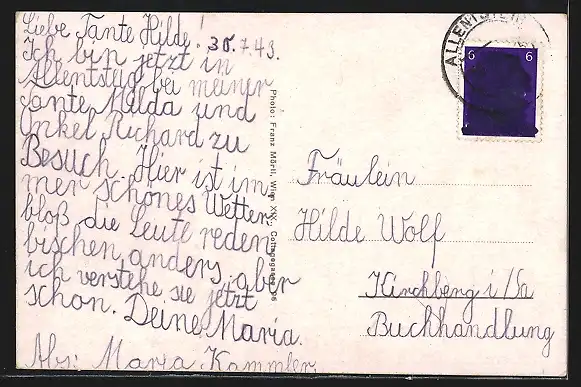 Liebe Tante Hilde! 30.7.43.
Ich bin jetzt in
Allentsteig bei meiner
Tante Milda und
Onkel Richard zu
Besuch. Hier ist im
mer schönes Wetter
bloß die Leute reden
bischen anders, aber
ich verstehe sie jetzt
schon. Deine Maria.
Abs: Maria Kammler.
Photo: Franz Mörtl, Wien XIX., Cottagegasse 26
ALLENTSTEIG
6 6
Fräulein
Hilde Wolf
Kirchberg i/Sa
Buchhandlung